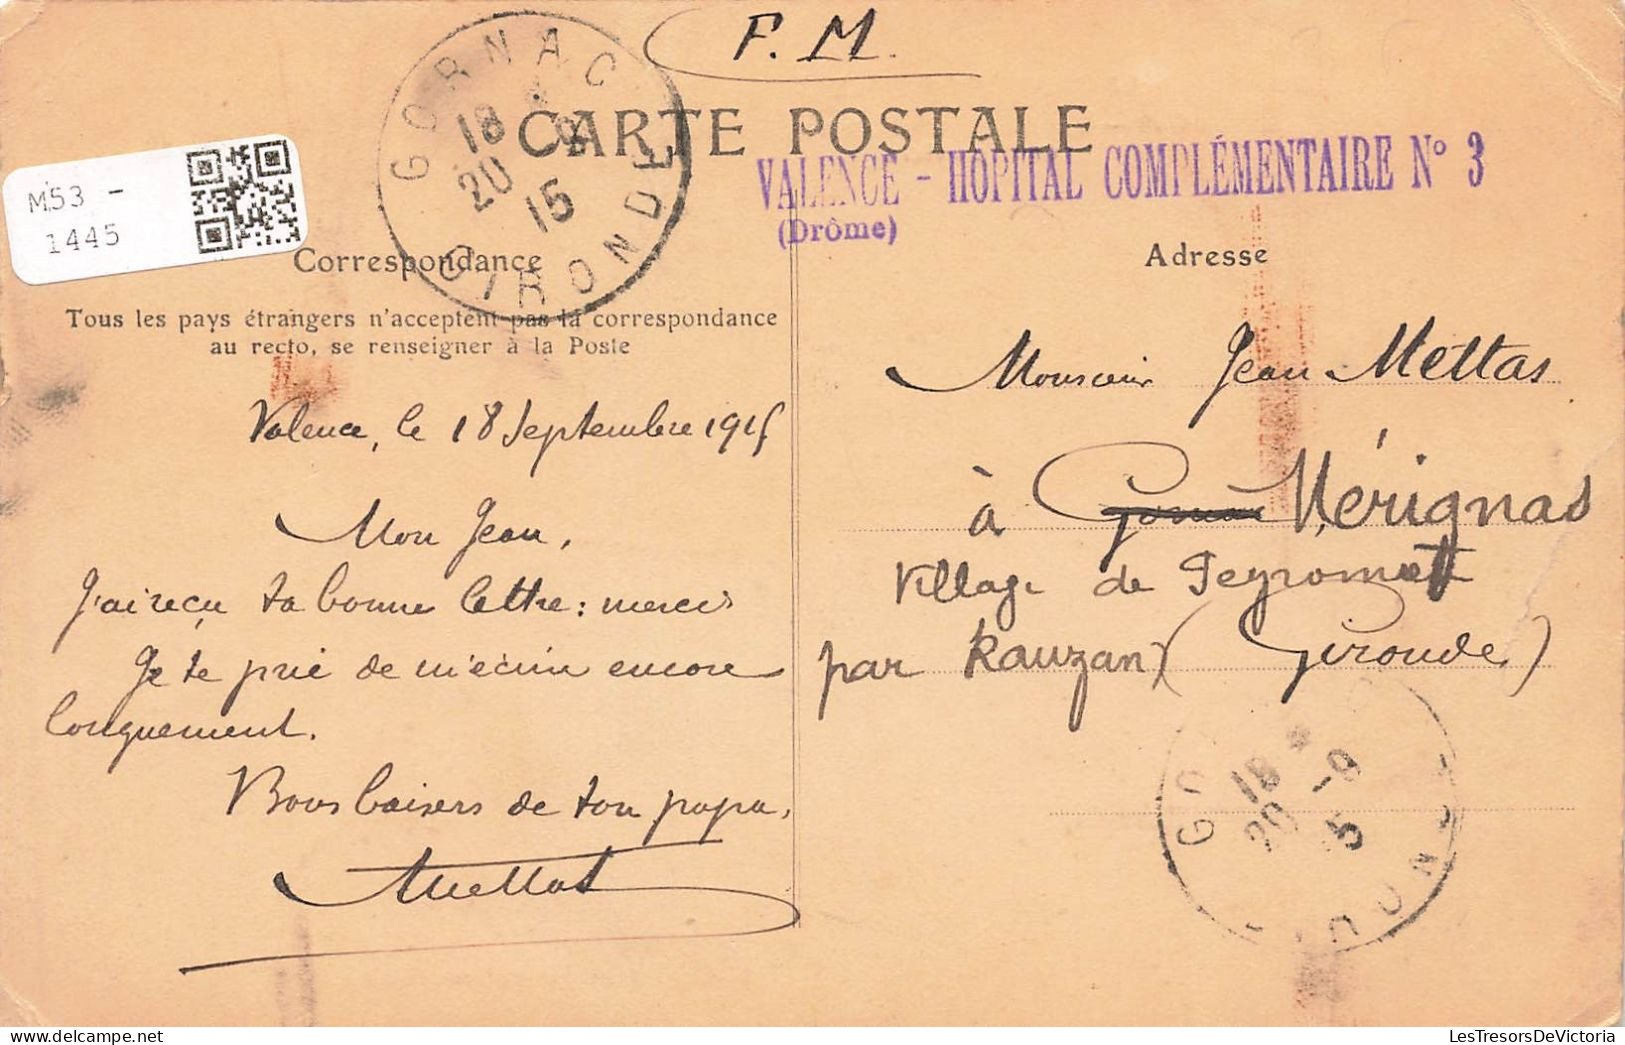 F.M.
CARTE POSTALE
GORNAC
18
20 9
15
GIRONDE
VALENCE - HOPITAL COMPLÉMENTAIRE N° 3
(Drôme)
M53 -
1445
Correspondance
Tous les pays étrangers n'acceptent pas la correspondance
au recto, se renseigner à la Poste
Valence, le 18 Septembre 1915
Mon Jean,
J'ai reçu ta bonne lettre : merci
Je te prie de m'écrire encore
longuement.
Bons baisers de ton papa,
Mettas
Adresse
Monsieur Jean Mettas
à Gornac Mérignas
Village de Peyromat
par Rauzan (Gironde)
18
20 -9
15
LesTresorsDeVictoria